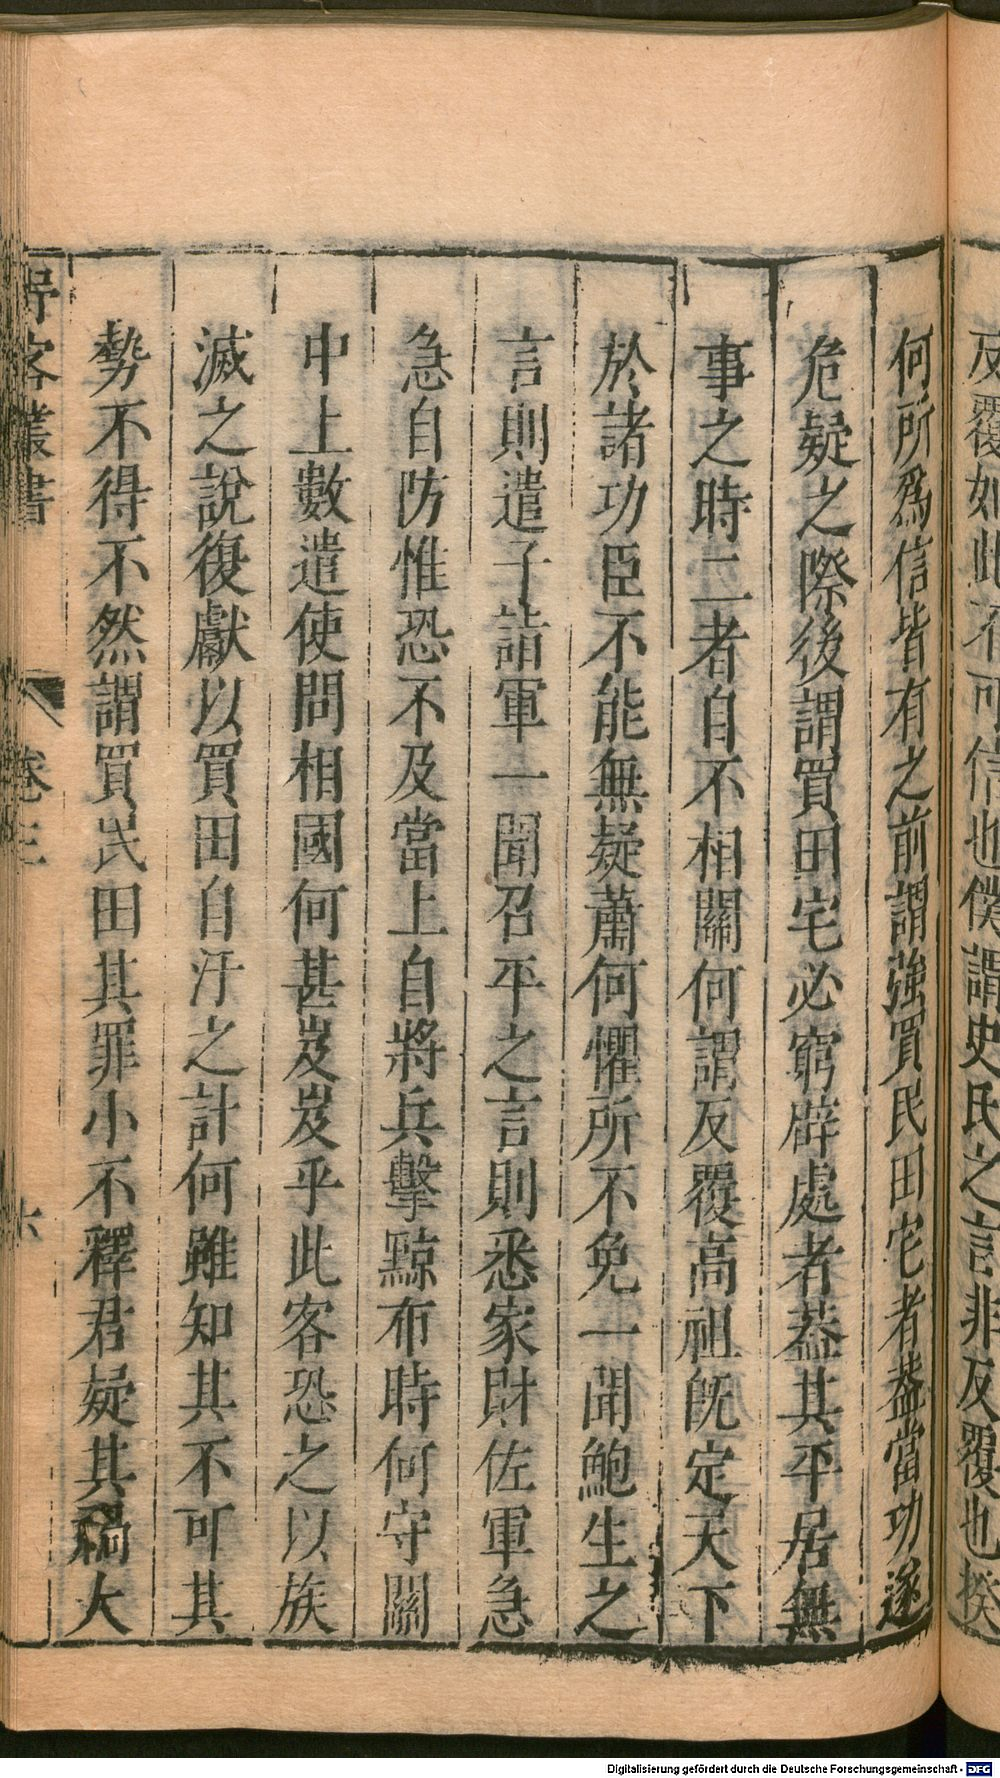 反覆如此不可信也僕謂史氏之言非反覆也揆
何所為信皆有之前謂強買民田宅者葢當功遂
危疑之際後謂買田宅必窮辟處者葢其平居無
事之時二者自不相關何謂反覆高祖旣定天下
於諸功臣不能無疑蕭何懼所不免一聞鮑生之
言則遣子詣軍一聞召平之言則悉家財佐軍急
急自防惟恐不及當上自將兵擊黥布時何守關
中上數遣使問相國何甚岌岌乎此客恐之以族
滅之說復獻以買田自汙之計何雖知其不可其
勢不得不然謂買民田其罪小不釋君疑其禍大
野客叢書 卷三 六
Digitalisierung gefördert durch die Deutsche Forschungsgemeinschaft - DFG